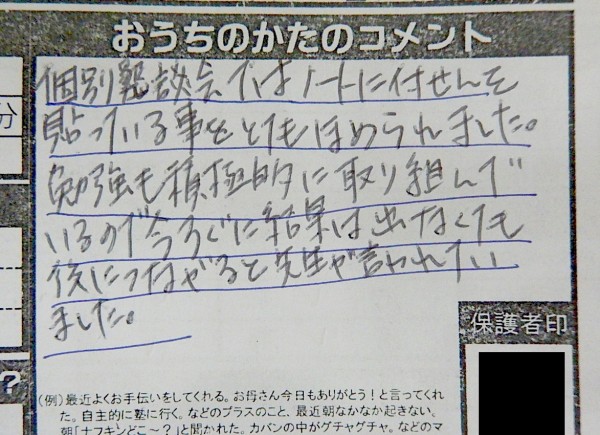 おうちのかたのコメント
個別懇談会ではノートに付せんを
貼っている事をとてもほめられました。
勉強も積極的に取り組んで
いるので今すぐに結果は出なくても
後につながると先生が言われてい
ました。
保護者印
分
?
(例)最近よくお手伝いをしてくれる。お母さん今日もありがとう!と言ってくれ
た。自主的に塾に行く。などのプラスのこと、最近朝なかなか起きない。
朝「ナフキンどこ〜?」と聞かれた。カバンの中がグチャグチャ。などのマ